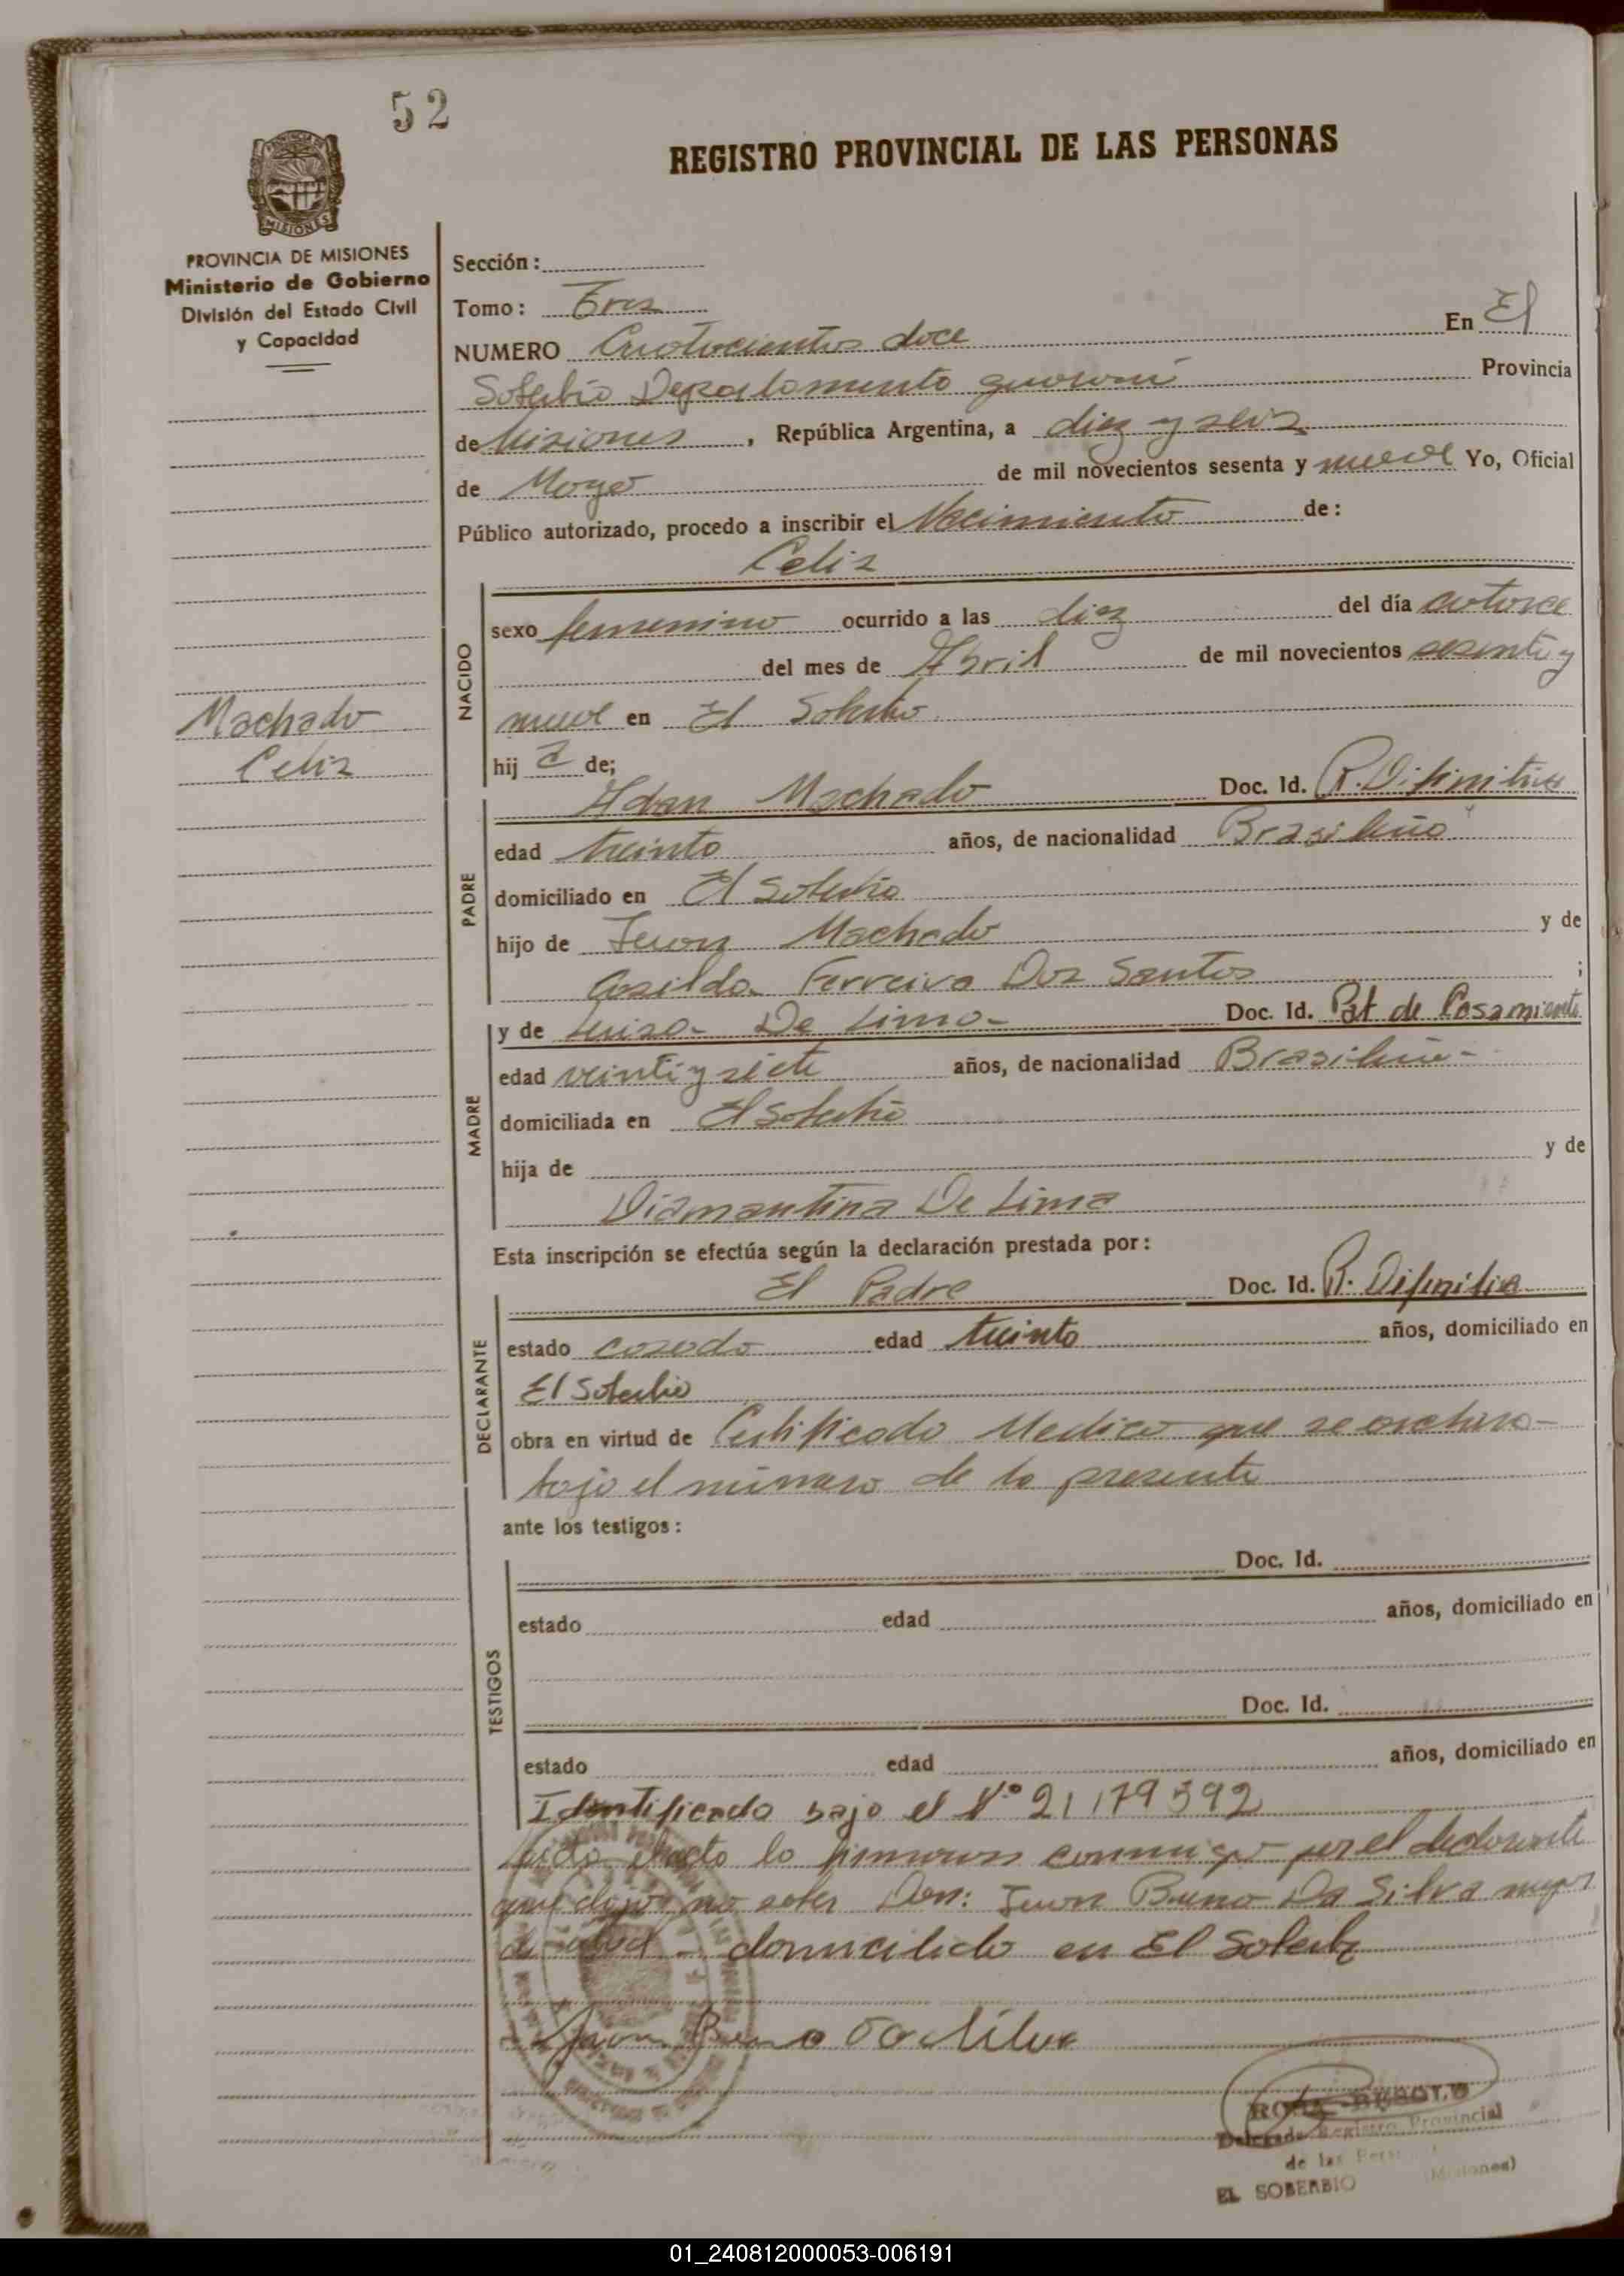 52
REGISTRO PROVINCIAL DE LAS PERSONAS
PROVINCIA DE MISIONES
MISIONES
PROVINCIA DE MISIONES
Ministerio de Gobierno
División del Estado Civil
y Capacidad
Machado
Celis
Sección:
Tomo: Tres
NUMERO Cuatrocientos doce En El
Soberbio Departamento guarani Provincia
de Misiones, República Argentina, a diez y seis
de Mayo de mil novecientos sesenta y nueve Yo, Oficial
Público autorizado, procedo a inscribir el Nacimiento de:
Celis
NACIDO
sexo femenino ocurrido a las diez del día catorce
del mes de Abril de mil novecientos sesenta y
nueve en El Soberbio
hij a de;
PADRE
Adan Machado Doc. Id. R. Difinitiva
edad treinta años, de nacionalidad Brasileño
domiciliado en El Soberbio
hijo de Juan Machado y de
Casilda Ferreira Dos Santos ;
MADRE
y de Luisa De Lima Doc. Id. Pat de Casamiento
edad veinti y siete años, de nacionalidad Brasileña
domiciliada en El Soberbio
hija de y de
Diamantina De Lima
Esta inscripción se efectúa según la declaración prestada por:
DECLARANTE
El Padre Doc. Id. R. Difinitiva
estado casado edad treinta años, domiciliado en
El Soberbio
obra en virtud de Certificado Medico que se archiva
bajo el número de la presente
ante los testigos:
TESTIGOS
Doc. Id.
estado edad años, domiciliado en
Doc. Id.
estado edad años, domiciliado en
Identificado bajo el Nº 21179392
Leida el acta la firmaron conmigo por el declarante
que dijo no saber Don: Juan Bueno Da Silva mayor
de edad - domiciliado en El Soberbio
Juan Bueno da Silva
Delegada Registro Provincial
de las
EL SOBERBIO (Misiones)
01_240812000053-006191